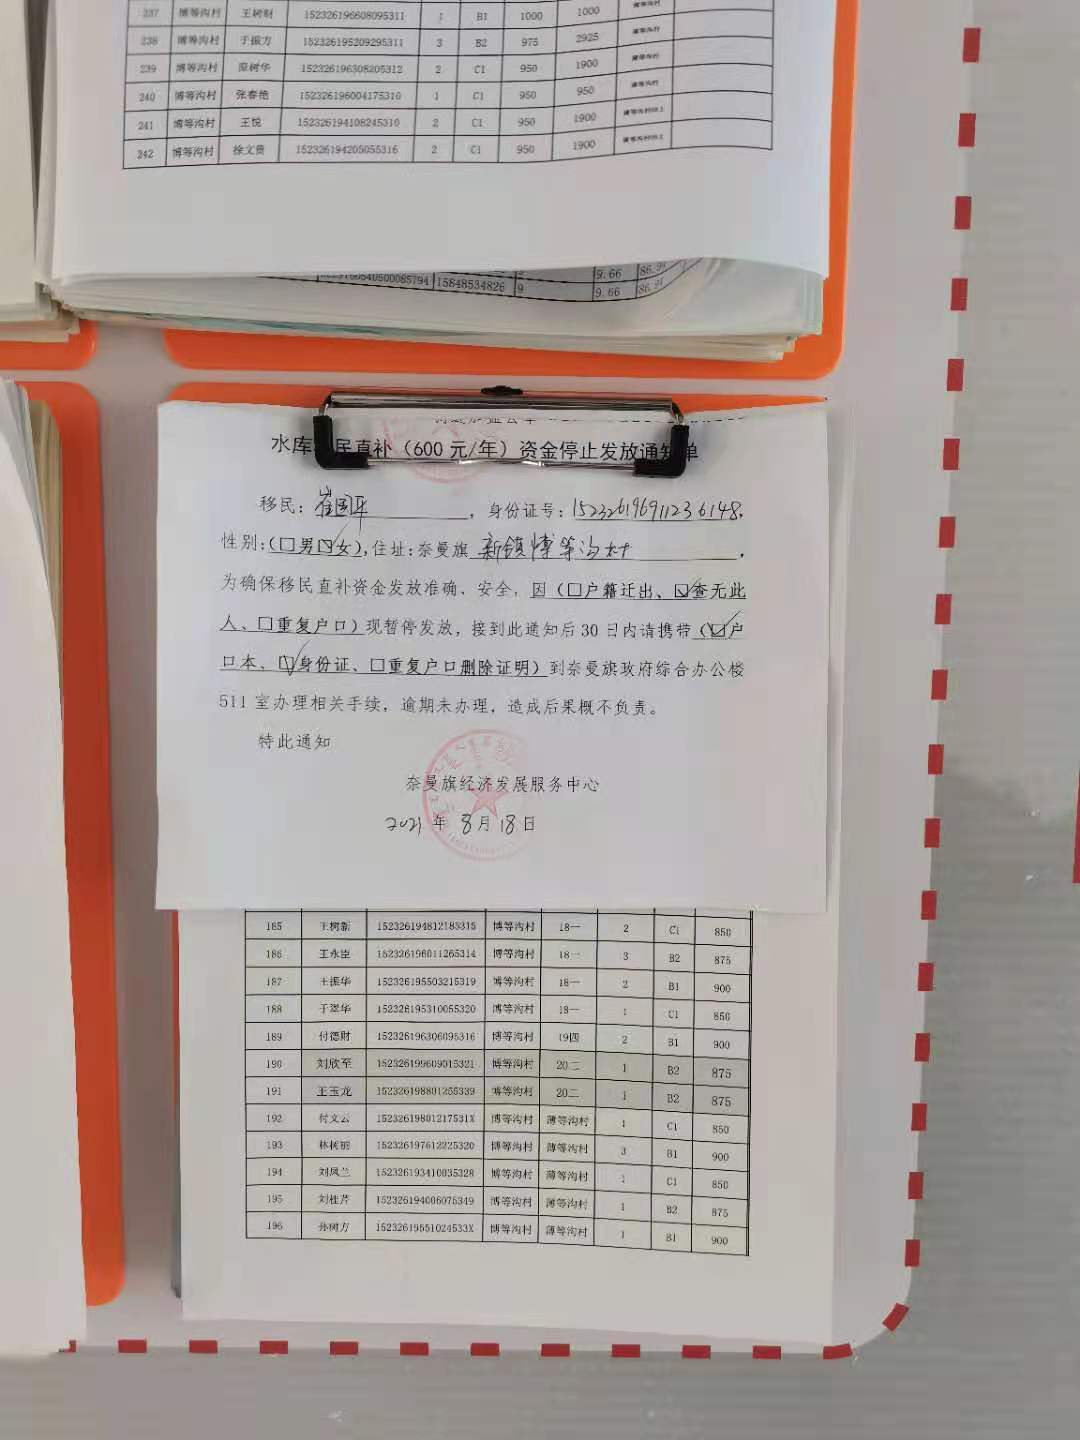 237 博等沟村 王树财 152326196608095311 1 B1 1000 1000
238 博等沟村 于振方 152326195209295311 3 B2 975 2925
239 博等沟村 树华 152326196308205312 2 C1 950 1900
240 博等沟村 张春艳 152326196004175310 1 C1 950 950
241 博等沟村 王悦 152326194108245310 2 C1 950 1900
242 博等沟村 徐文贵 152326194205055316 2 C1 950 1900
15848534826 9 9.66
9.66
水库民直补（600元/年）资金停止发放通知单
移民：崔国平，身份证号：152326196911236148.
性别：(□男☑女)，住址：奈曼旗 新镇博等沟村.
为确保移民直补资金发放准确、安全，因（□户籍迁出、☑查无此
人、□重复户口）现暂停发放，接到此通知后30日内请携带（☑户
口本、☑身份证、□重复户口删除证明）到奈曼旗政府综合办公楼
511室办理相关手续，逾期未办理，造成后果概不负责。
特此通知
奈曼旗经济发展服务中心
2021年8月18日
185 王树新 152326194812185315 博等沟村 18一 2 C1 850
186 王永臣 152326196011265314 博等沟村 18一 3 B2 875
187 王振华 152326195503215319 博等沟村 18一 2 B1 900
188 于翠华 152326195310055320 博等沟村 18一 1 C1 850
189 付德财 152326196306095316 博等沟村 19四 2 B1 900
190 刘欣至 152326199609015321 博等沟村 20二 1 B2 875
191 王玉龙 152326198801255339 博等沟村 20二 1 B2 875
192 付文云 15232619801217531X 博等沟村 薄等沟村 1 C1 850
193 林树丽 152326197612225320 博等沟村 薄等沟村 3 B1 900
194 刘凤兰 152326193410035328 博等沟村 薄等沟村 1 C1 850
195 刘桂芹 152326194006075349 博等沟村 薄等沟村 1 B2 875
196 孙树方 15232619551024533X 博等沟村 薄等沟村 1 B1 900